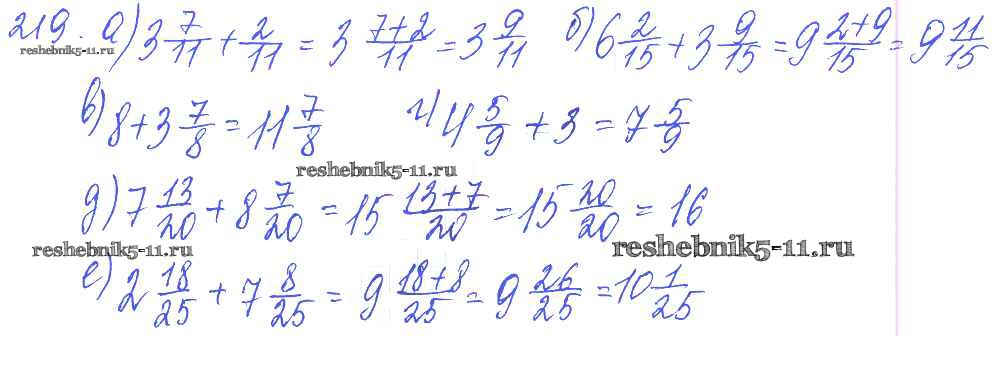 219. а) 3 7/11 + 2/11 = 3 (7+2)/11 = 3 9/11 б) 6 2/15 + 3 9/15 = 9 (2+9)/15 = 9 11/15
reshebnik5-11.ru
в) 8 + 3 7/8 = 11 7/8 г) 4 5/9 + 3 = 7 5/9
reshebnik5-11.ru
д) 7 13/20 + 8 7/20 = 15 (13+7)/20 = 15 20/20 = 16
reshebnik5-11.ru reshebnik5-11.ru
е) 2 18/25 + 7 8/25 = 9 (18+8)/25 = 9 26/25 = 10 1/25